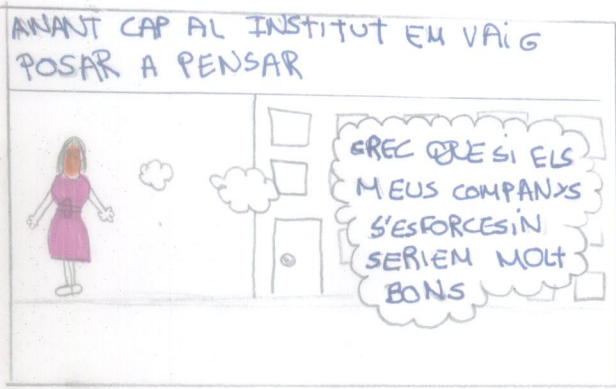 ANANT CAP AL INSTITUT EM VAIG
POSAR A PENSAR
CREC QUE SI ELS
MEUS COMPANYS
S'ESFORCESIN
SERIEM MOLT
BONS